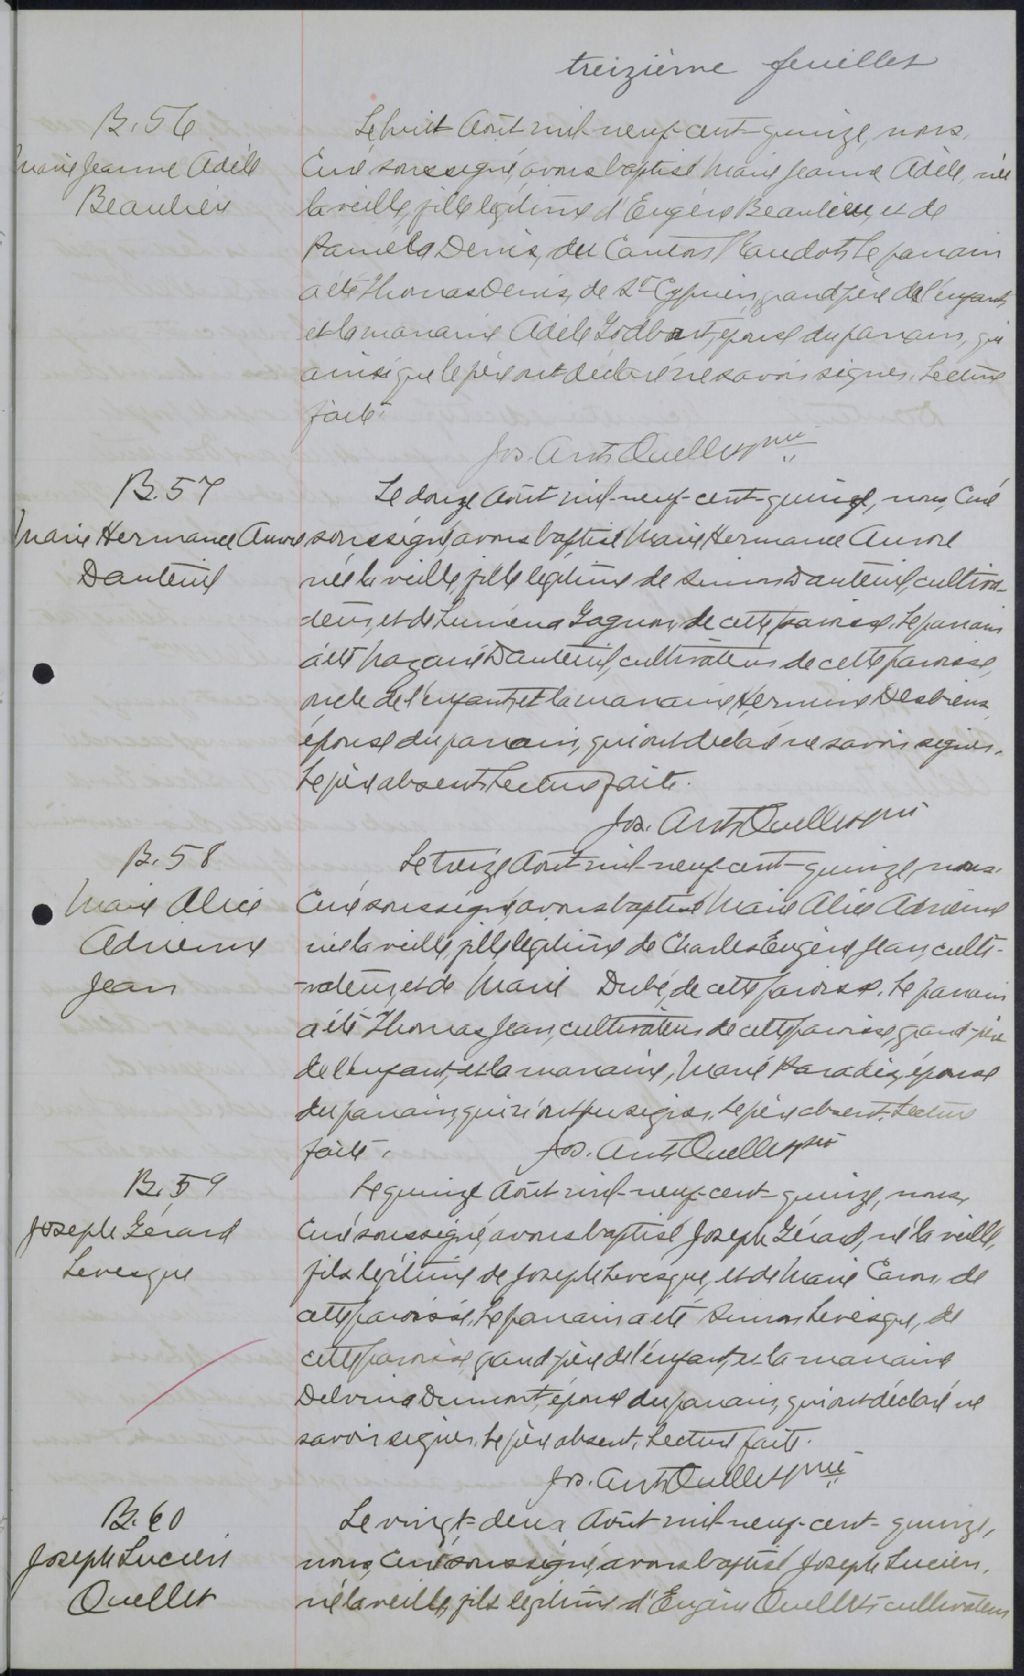 treizième feuillet
B. 56
Marie Jeanne Adèle
Beaulieu
Le huit Août mil-neuf-cent-quinze, nous,
Curé soussigné, avons baptisé Marie Jeanne Adèle, née
la veille, fille légitime d'Eugène Beaulieu, et de
Paméla Denis, du Canton Raudot. Le parrain
a été Thomas Denis, de St Cyprien, grand père de l'enfant,
et la marraine Adèle Godbout, épouse du parrain, qui
ainsi que le père ont déclaré ne savoir signer. Lecture
faite.
Jos. Ant. Ouellet, ptre
B. 57
Marie Hermance Aurore
Dauteuil
Le douze Août mil-neuf-cent-quinze, nous, Curé
soussigné, avons baptisé Marie Hermance Aurore
née la veille, fille légitime de Simon Dauteuil, cultiva-
teur, et de Luména Gagnon, de cette paroisse. Le parrain
a été Nazaire Dauteuil, cultivateur de cette paroisse,
oncle de l'enfant, et la marraine, Hermine Desbiens,
épouse du parrain, qui ont déclaré ne savoir signer.
Le père absent. Lecture faite.
Jos. Ant. Ouellet, ptre
B. 58
Marie Alice
Adrienne
Jean
Le treize Août mil-neuf-cent-quinze, nous,
Curé soussigné, avons baptisé Marie Alice Adrienne
née la veille, fille légitime de Charles Eugène Jean, culti-
-vateur, et de Marie Dubé, de cette paroisse. Le parrain
a été Thomas Jean, cultivateur de cette paroisse, grand-père
de l'enfant, et la marraine, Marie Paradis, épouse
du parrain, qui n'ont pu signer. Le père absent. Lecture
faite.
Jos. Ant. Ouellet, ptre
B. 59
Joseph Gérard
Levesque
Le quinze Août mil-neuf-cent-quinze, nous,
Curé soussigné, avons baptisé Joseph Gérard, né la veille,
fils légitime de Joseph Levesque, et de Marie Caron, de
cette paroisse. Le parrain a été Simon Levesque, de
cette paroisse, grand-père de l'enfant, et la marraine
Delvina Dumont, épouse du parrain, qui ont déclaré ne
savoir signer. Le père absent. Lecture faite.
Jos. Ant. Ouellet, ptre
B. 60
Joseph Lucien
Ouellet
Le vingt-deux Août mil-neuf-cent-quinze,
nous, Curé soussigné, avons baptisé Joseph Lucien,
né la veille, fils légitime d'Eugène Ouellet, cultivateur